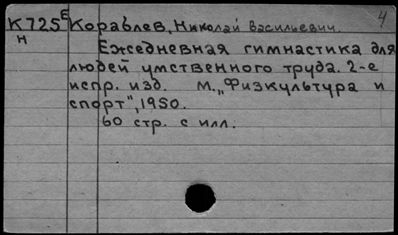 К725Е Кораблев, Николай Васильевич. 4
н
Ежедневная гимнастика для
людей умственного труда. 2-е
испр. изд. М. „Физкультура и
спорт", 1950.
60 стр. с илл.